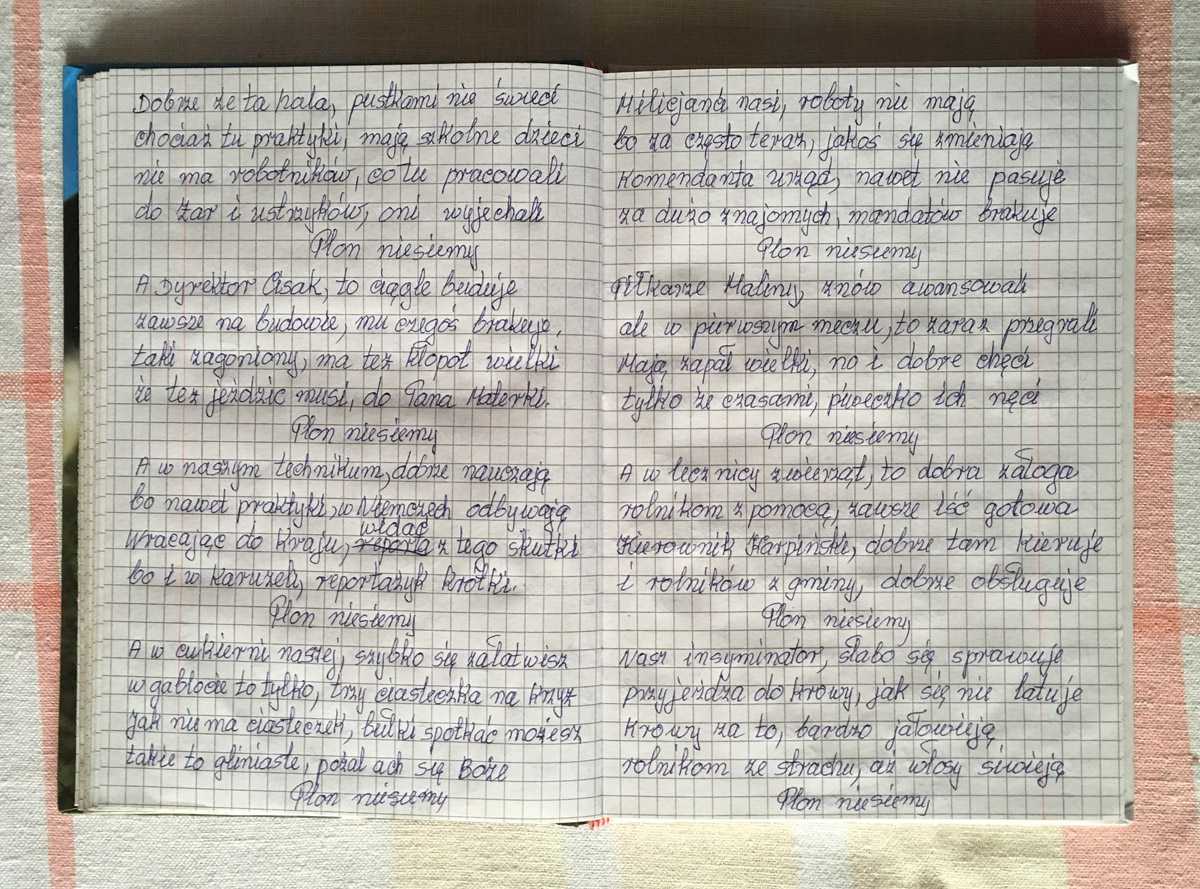 Dobrze że ta hala, pustkami nie świeci
chociaż tu praktyki, mają szkolne dzieci
nie ma robotników, co tu pracowali
do Żar i Ustrzyków, oni wyjechali
Plon niesiemy
A Dyrektor Cisak, to ciągle buduje
zawsze na budowie, mu czegoś brakuje,
taki zagoniony, ma też kłopot wielki
że też jeździć musi, do Pana Materki.
Plon niesiemy
A w naszym technikum, dobrze nauczają
bo nawet praktyki, w Niemczech odbywają
wracając do kraju, widać z tego skutki
bo i w Karuzeli, reportażyk krótki.
Plon niesiemy
A w cukierni naszej, szybko się załatwisz
w gablocie to tylko, trzy ciasteczka na krzyż
jak nie ma ciasteczek, bułki spotkać możesz
takie to gliniaste, pożal ach się Boże
Plon niesiemy
Milicjanci nasi, roboty nie mają
bo za często teraz, jakoś się zmieniają
Komendanta urząd, nawet nie pasuje
za dużo znajomych, mandatów brakuje
Plon niesiemy
Piłkarze Maliny, znów awansowali
ale w pierwszym meczu, to zaraz przegrali
Mają zapał wielki, no i dobre chęci
tylko że czasami, piweczko ich nęci
Plon niesiemy
A w lecznicy zwierząt, to dobra załoga
rolnikom z pomocą, zawsze iść gotowa
Kierownik Karpiński, dobrze tam kieruje
i rolników z gminy, dobrze obsługuje
Plon niesiemy
Nasz insyminator, słabo się sprawuje
przyjeżdża do krowy, jak się nie latuje
Krowy za to, bardzo jałowieją
rolnikom ze strachu, aż włosy siwieją
Plon niesiemy